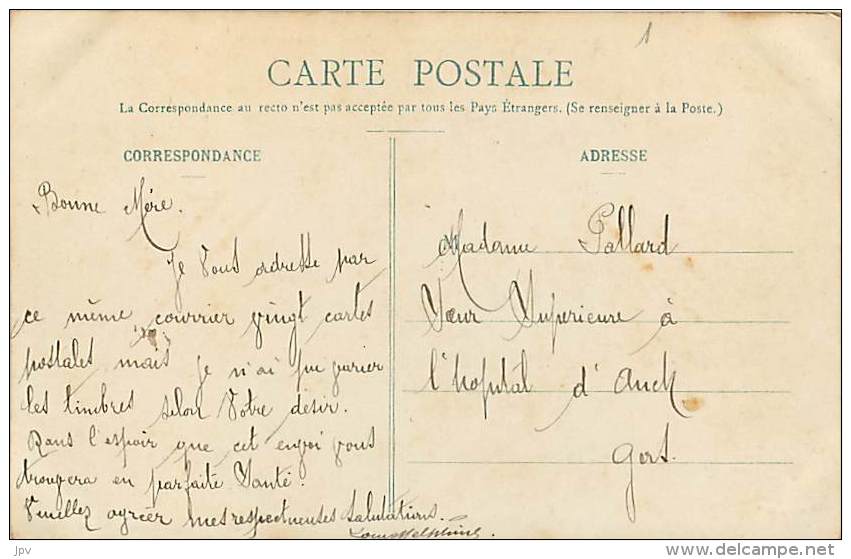 1
CARTE POSTALE
La Correspondance au recto n'est pas acceptée par tous les Pays Étrangers. (Se renseigner à la Poste.)
CORRESPONDANCE
Bonne Mère.
Je Vous adresse par
ce même courrier vingt cartes
postales mais je n'ai pu varier
les timbres selon Votre désir.
Dans l'espoir que cet envoi vous
trouvera en parfaite Santé.
Veuillez agréer mes respectueuses salutations.
ADRESSE
Madame Pallard
Sœur Superieure à
l'hopital d'Auch
Gers.
JPV
www.delcampe.net